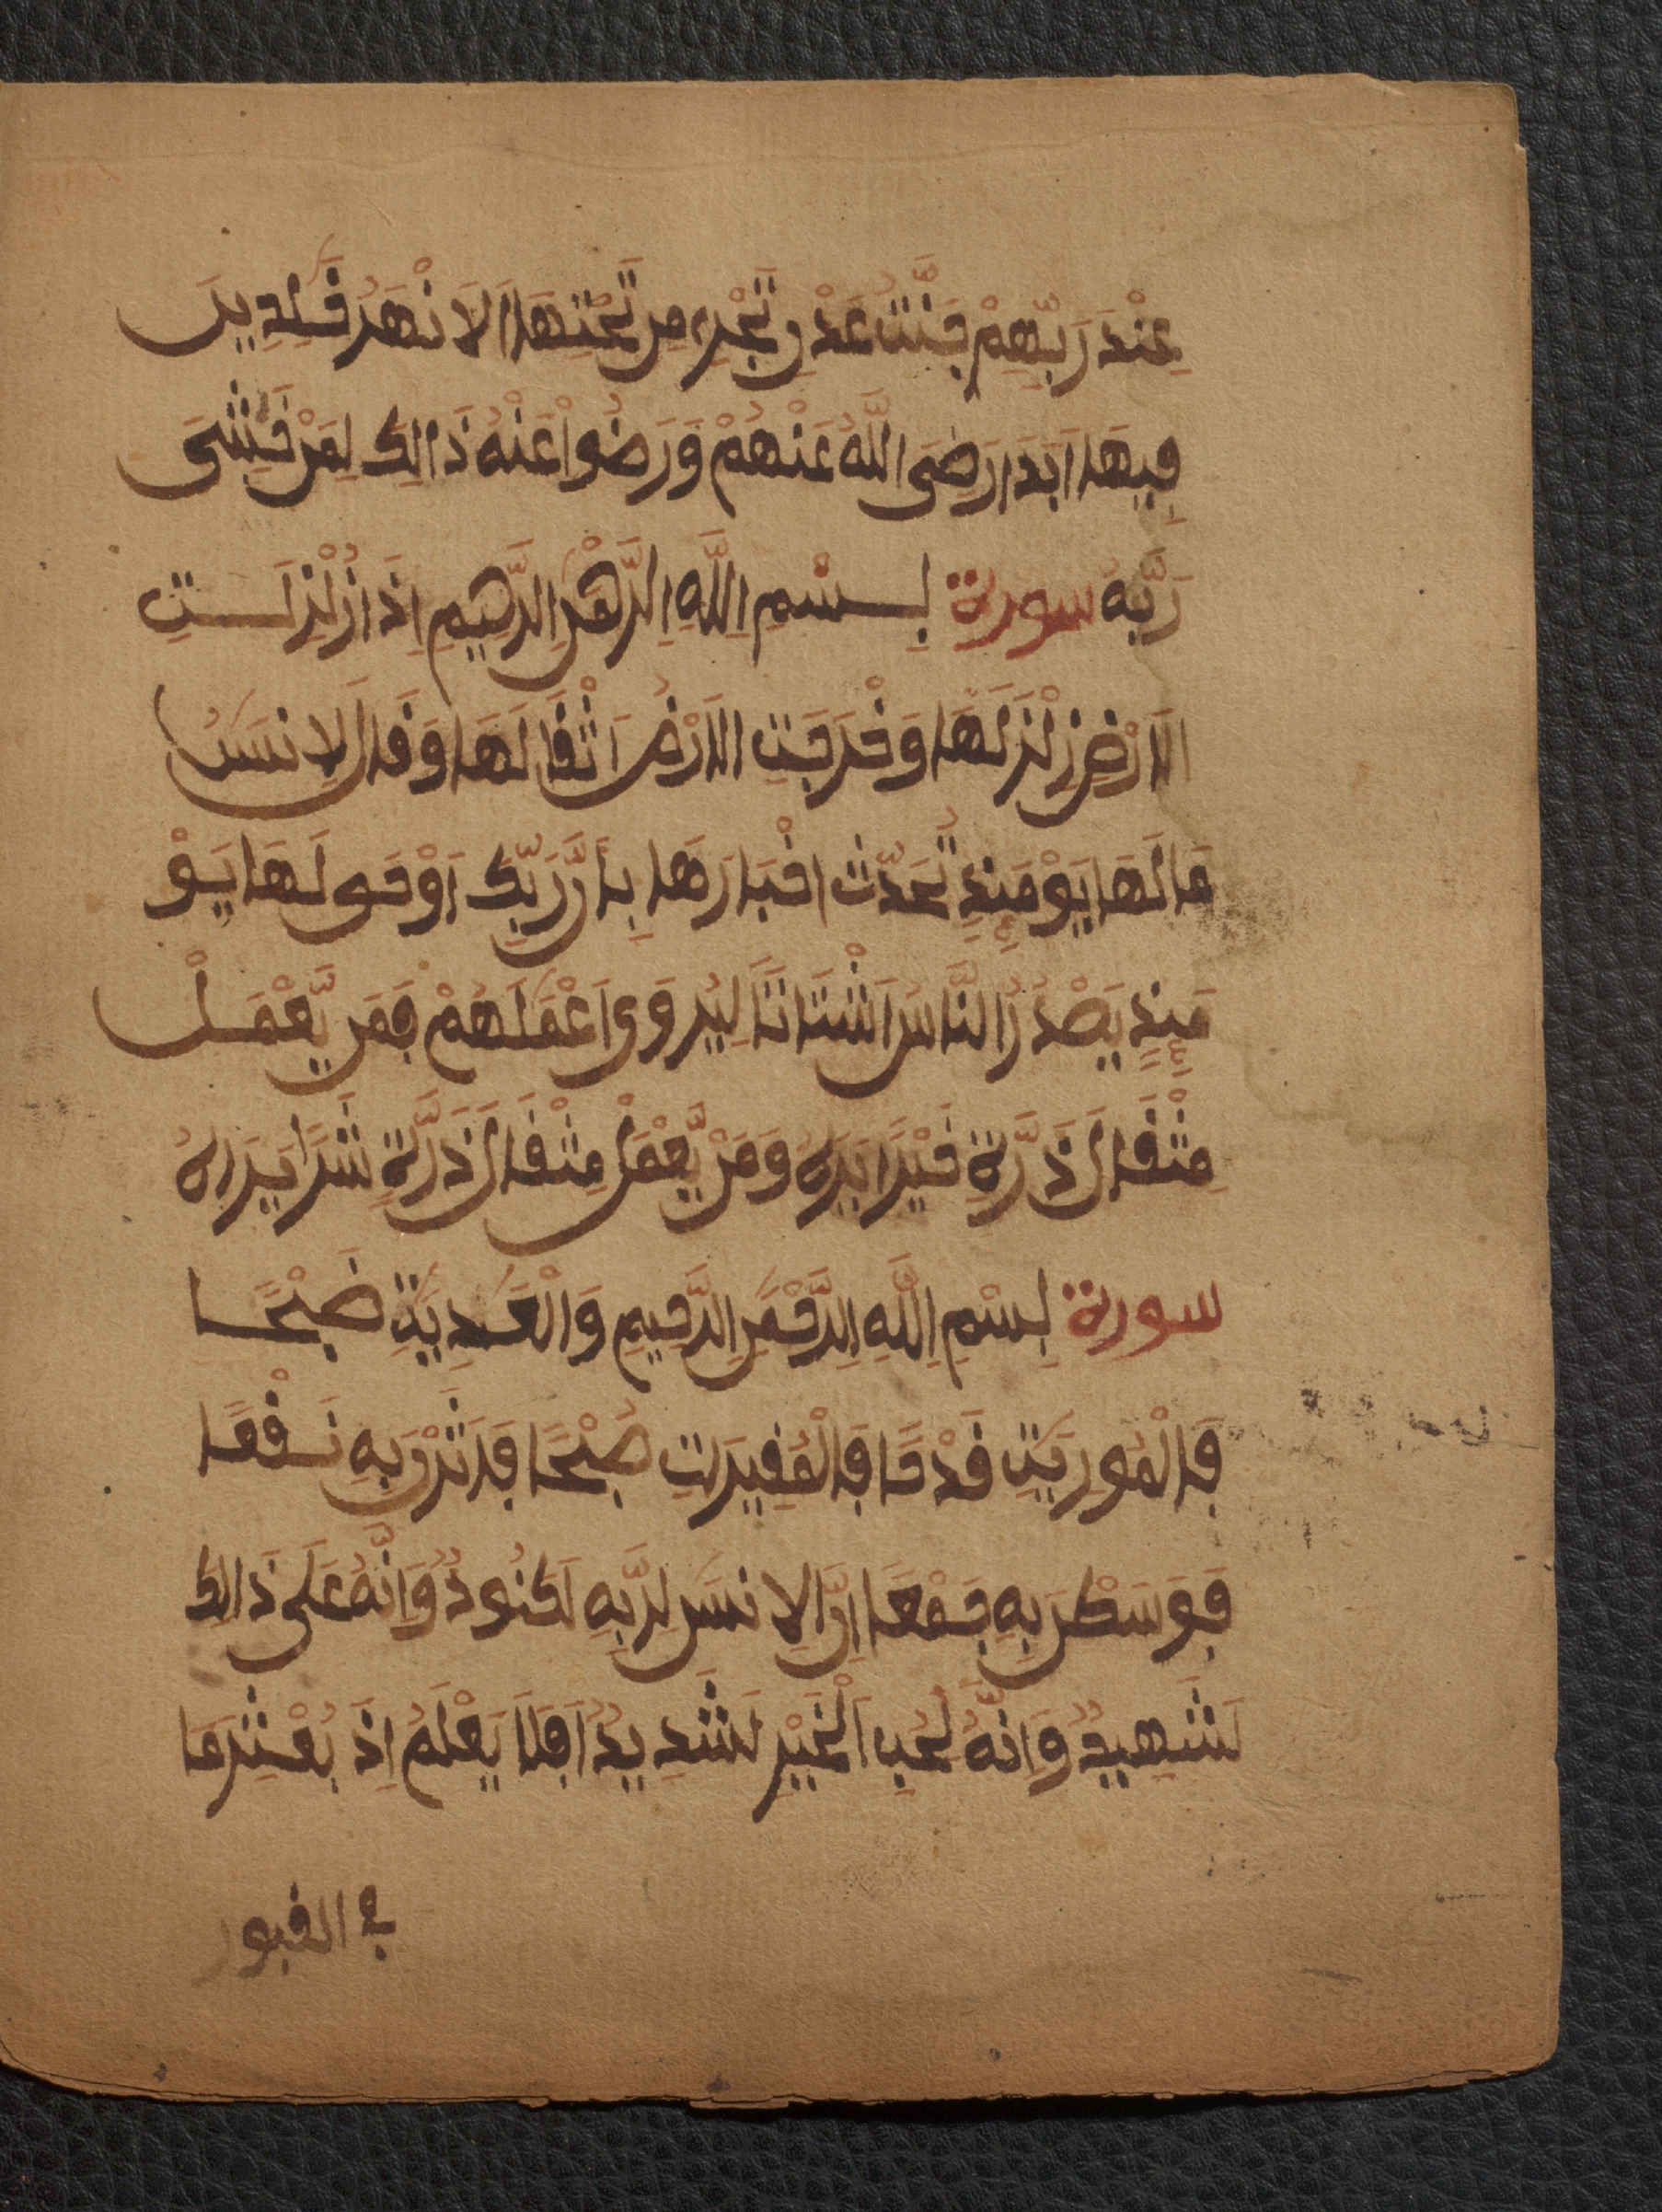 عِنْدَ رَبِّهِمْ جَنَّتُ عَدْنٍ تَجْرِى مِن تَحْتِهَا اَلَانْهَرُ خَلِدِينَ
فِيهَا أَبَدَا رَضِىَ اللَّهُ عَنْهُمْ وَرَضُوا عَنْهُ ذَالِكَ لِمَنْ خَشِىَ
رَبَّهُ سورة بِسْمِ اِللَّهِ اِلرَّحْمَنِ اِلرَّحِيمِ اِذَا زُلْزِلَتِ
الَارْضُ زِلْزَلَهَا وَخْرَجَتِ الَارْضُ اَثْقَالَهَا وَقَالَ الِانسَنُ
مَا لَهَا يَوْمَئِذٍ تُحَدِّث اخْبَارَهَا بِأَنَّ رَبَّكَ أَوْحَى لَهَا يَوْ
مَئِذٍ يَصْدُرُ النَّاسُ اَشْتَاتَاً لِيُرَوَى اَعْمَلَهُمْ فَمَن يَّعْمَلْ
مِثْقَالَ ذَرَّةٍ خَيْرًا يَرَهُ وَمَنْ يَّعْمَلْ مِثْقَالَ ذَرَّةٍ شَرًّا يَرَاهُ
سورة بِسْمِ اِللَّهِ اِلرَّحْمَنِ اِلرَّحِيمِ وَالْعَدِيَتِ ضَبْحًا
فَالْمُورِيَتِ قَدْحًا فَالْمُغِيرَاتِ صُبْحًا فَأَثَرْنَ بِهِ نَقْعًا
فَوَسَطْنَ بِهِ جَمْعًا اِنَّ الِانسَنَ لِرَبِّهِ لَكَنُودٌ وَاِنَّهُ عَلَى ذَالِكَ
لَشَهِيدٌ وَاِنَّهُ لِحُبِّ اَلْخَيْرِ لَشَدِيدٌ اَفَلَا يَعْلَمُ اِذَ بُعْثِرَ مَا
في القبور